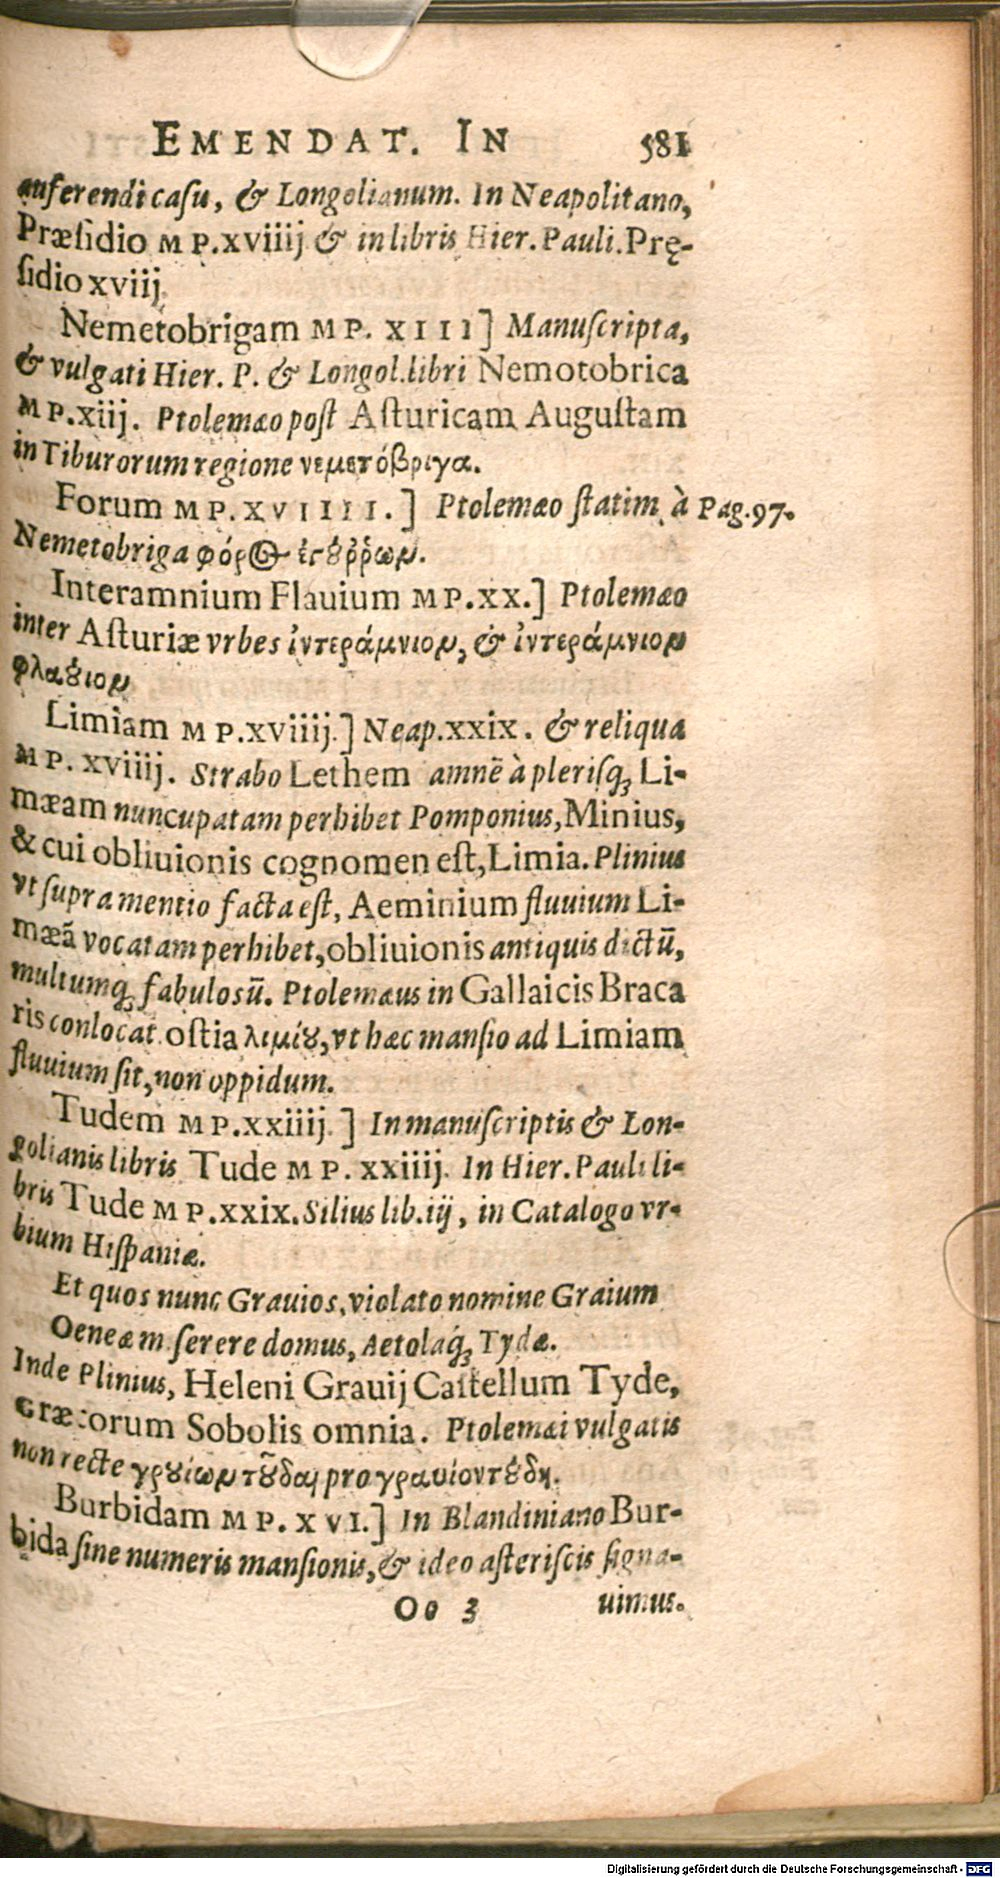 EMENDAT. IN 581
auferendi casu, & Longolianum. In Neapolitano,
Præsidio MP.xviiij & in libris Hier. Pauli. Prę-
sidio xviij.
Nemetobrigam MP. XIII] Manuscripta,
& vulgati Hier. P. & Longol. libri Nemotobrica
MP.xiij. Ptolemæo post Asturicam Augustam
in Tiburorum regione νεμετόβριγα.
Forum MP.XVIIII.] Ptolemæo statim à Pag.97.
Nemetobriga φόρος
Interamnium Flauium MP.XX.] Ptolemæo
inter Asturiæ vrbes ἰντεράμνιον, & ἰντεράμνιον
φλαȣ́ιον
Limiam MP.xviiij.] Neap.xxix. & reliqua
MP. xviiij. Strabo Lethem amnē à plerisq; Li-
mæam nuncupatam perhibet Pomponius, Minius,
& cui obliuionis cognomen est, Limia. Plinius
vt supra mentio facta est, Aeminium fluuium Li-
mæā vocatam perhibet, obliuionis antiquis dictū,
multumq; fabulosū. Ptolemæus in Gallaicis Braca
ris conlocat ostia λιμίȣ, vt hæc mansio ad Limiam
fluuium sit, non oppidum.
Tudem MP.xxiiij.] In manuscriptis & Lon-
golianis libris Tude MP. xxiiij. In Hier. Pauli li-
bris Tude MP.xxix. Silius lib. iij, in Catalogo vr-
bium Hispaniæ.
Et quos nunc Grauios, violato nomine Graium
Oeneæ m serere domus, Aetolaq; Tydæ.
Inde Plinius, Heleni Grauij Castellum Tyde,
Græcorum Sobolis omnia. Ptolemæi vulgatis
non recte γρȣίων τȣ̃δαι pro γραυίον τȣ́δη.
Burbidam MP. XVI.] In Blandiniano Bur-
bida sine numeris mansionis, & ideo asteriscis signa-
Oo 3 uimus.
Digitalisierung gefördert durch die Deutsche Forschungsgemeinschaft - DFG